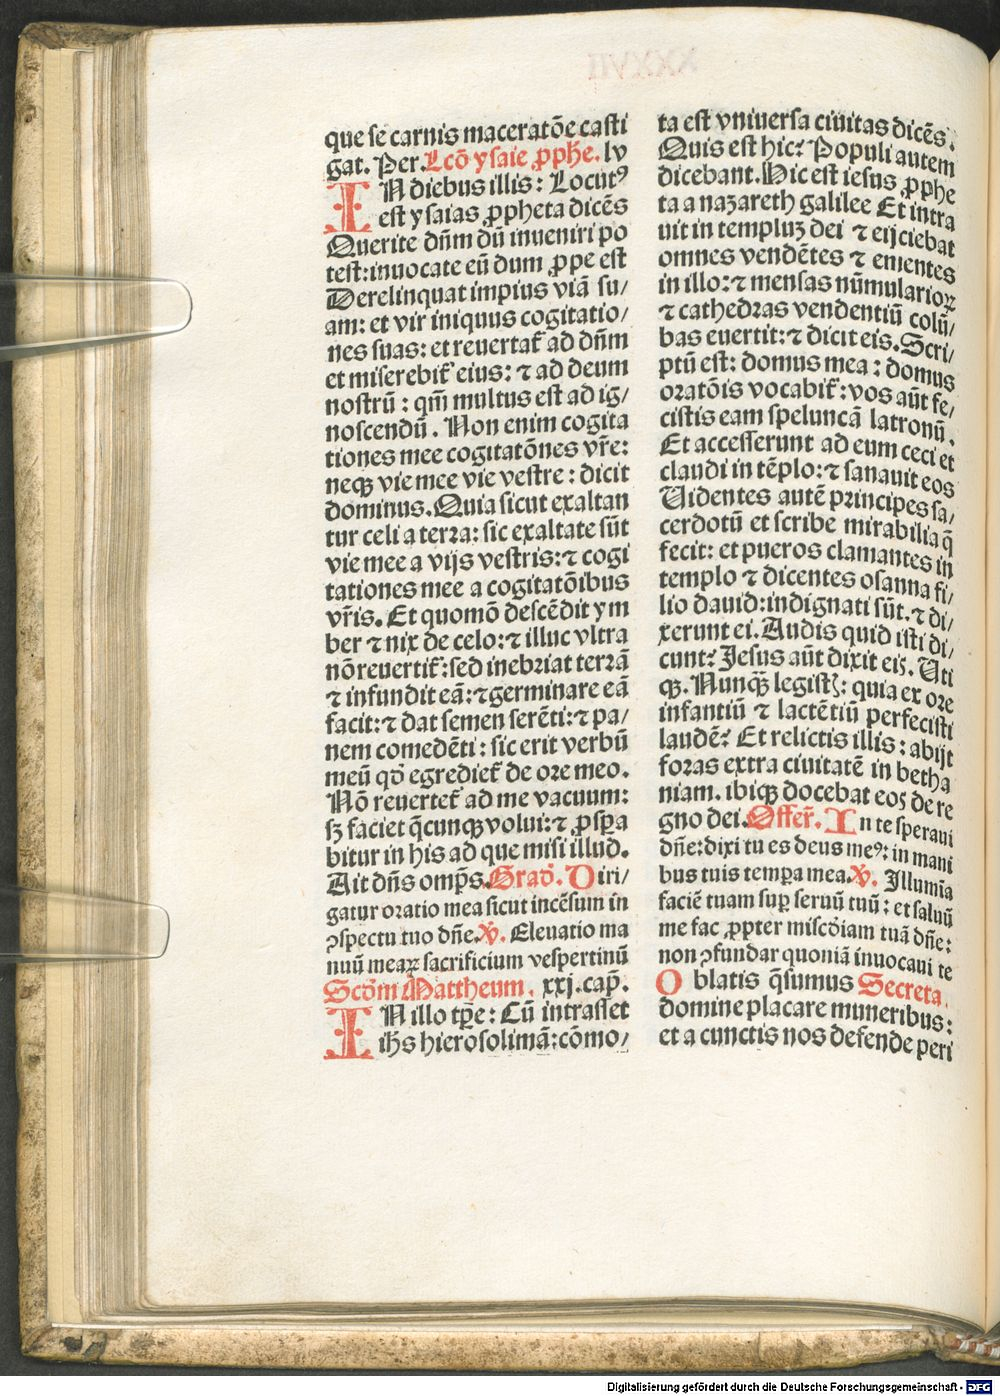 que se carnis maceratōe casti
gat. Per. Lcō ysaie ꝓpħe. lv
IN diebus illis: Locutꝰ
est ysaias ꝓpheta dicēs
Querite dñm dū inueniri po
test: inuocate eū dum ꝓpe est
Derelinquat impius viā su/
am: et vir iniquus cogitatio/
nes suas: et reuertat᷑ ad dñm
et miserebit᷑ eius: ⁊ ad deum
nostrū: qm̄ multus est ad ig/
noscendū. Non enim cogita
tiones mee cogitatōnes vr̄e:
neqꝫ vie mee vie vestre: dicit
dominus. Quia sicut exaltan
tur celi a terra: sic exaltate sūt
vie mee a vijs vestris: ⁊ cogi
tationes mee a cogitatōibus
vr̄is. Et quomō descēdit ym
ber ⁊ nix de celo: ⁊ illuc vltra
nō reuertit᷑: sed inebriat terrā
⁊ infundit eā: ⁊ germinare eā
facit: ⁊ dat semen serēti: ⁊ pa/
nem comedēti: sic erit verbū
meū qḋ egrediet᷑ de ore meo.
Nō reuertet᷑ ad me vacuum:
sꝫ faciet q̄cunqꝫ volui: ⁊ ꝓspa
bitur in his ad que misi illud.
Ait dñs omp̄s. Grad̄. Diri/
gatur oratio mea sicut incēsum in
ꝯspectu tuo dñe. ℣. Eleuatio ma
nuū meaꝝ sacrificium vespertinū
Scd̄m Mattheum. xxj. cap̄.
IN illo tp̄e: Cū intrasset
ih̄s hierosolimā: cōmo/
ta est vniuersa ciuitas dicēs.
Quis est hic? Populi autem
dicebant. Hic est iesus ꝓphe
ta a nazareth galilee Et intra
uit in templuꝫ dei ⁊ eijciebat
omnes vendētes ⁊ ementes
in illo: ⁊ mensas nūmularioꝝ
⁊ cathedras vendentiū colū/
bas euertit: ⁊ dicit eis. Scri/
ptū est: domus mea: domus
oratōis vocabit᷑: vos aūt fe/
cistis eam speluncā latronū.
Et accesserunt ad eum ceci et
claudi in tēplo: ⁊ sanauit eos
Uidentes autē principes sa/
cerdotū et scribe mirabilia q̄
fecit: et pueros clamantes in
templo ⁊ dicentes osanna fi/
lio dauid: indignati sūt. ⁊ di/
xerunt ei. Audis quid isti di/
cunt? Jesus aūt dixit eis. Uti
qꝫ. Nunqꝫ̄ legistꝭ: quia ex ore
infantiū ⁊ lactētiū perfecisti
laudē? Et relictis illis: abijt
foras extra ciuitatē in betha
niam. ibiqꝫ docebat eos de re
gno dei. Offer̄. In te speraui
dñe: dixi tu es deus meꝰ: in mani
bus tuis tempa mea. ℣. Illumīa
faciē tuam sup seruū tuū: et saluū
me fac ꝓpter misc̄diam tuā dñe:
non ꝯfundar quoniā inuocaui te
Oblatis q̄sumus Secreta.
domine placare muneribus:
et a cunctis nos defende peri
Digitalisierung gefördert durch die Deutsche Forschungsgemeinschaft - DFG